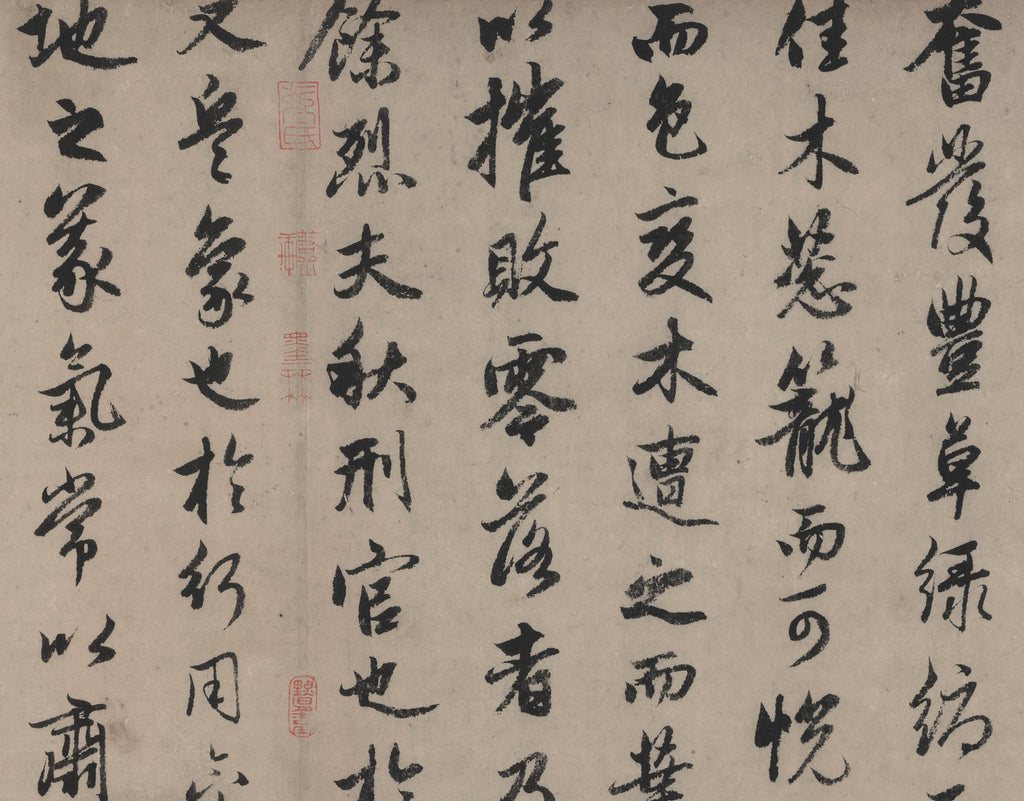 奮發豐草綠縟
佳木葱籠而可悅
而色變木遭之而葉
以摧敗零落者乃
餘烈夫秋刑官也於
又兵象也於行用
地之義氣常以肅
墨林